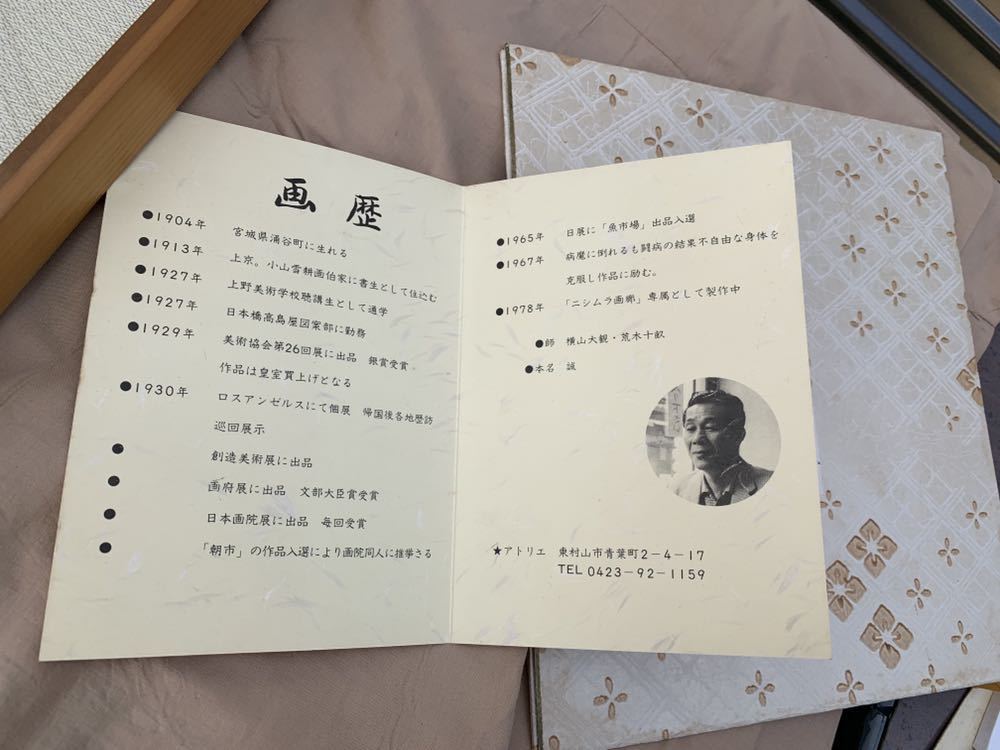 画歴
●1904年 宮城県涌谷町に生れる
●1913年 上京。小山雪耕画伯家に書生として住込む
●1927年 上野美術学校聴講生として通学
●1927年 日本橋高島屋図案部に勤務
●1929年 美術協会第26回展に出品 銀賞受賞
作品は皇室買上げとなる
●1930年 ロスアンゼルスにて個展 帰国後各地歴訪
巡回展示
● 創造美術展に出品
● 画府展に出品 文部大臣賞受賞
● 日本画院展に出品 毎回受賞
● 「朝市」の作品入選により画院同人に推挙さる
●1965年 日展に「魚市場」出品入選
●1967年 病魔に倒れるも闘病の結果不自由な身体を
克服し作品に励む。
●1978年 「ニシムラ画廊」専属として製作中
●師 横山大観・荒木十畝
●本名 誠
★アトリエ 東村山市青葉町2−4−17
TEL 0423−92−1159